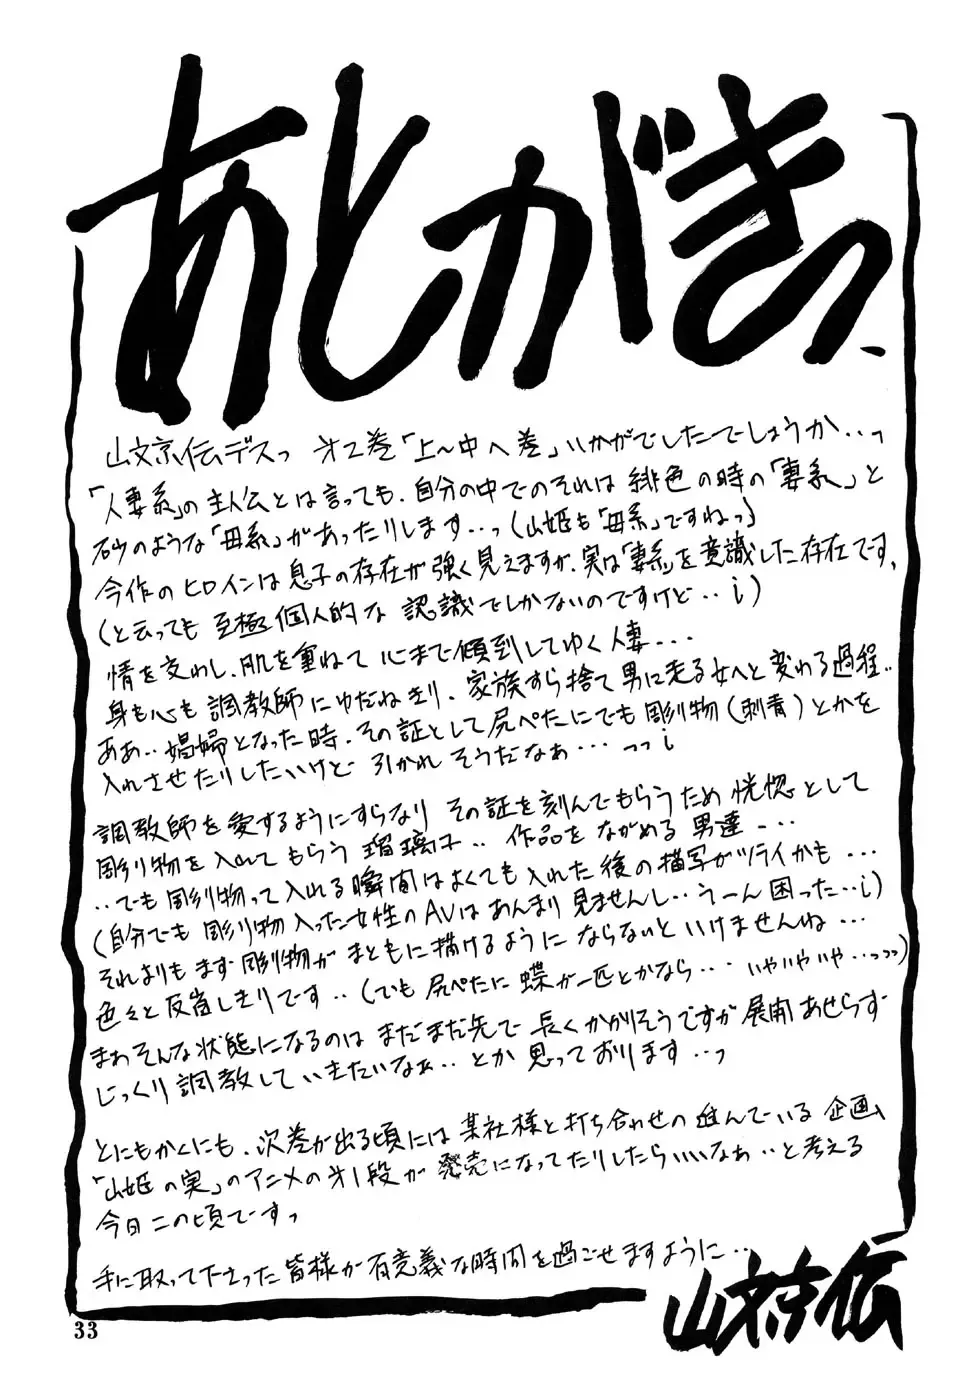 あとがきっ
山文京伝デスっ 第2巻「上〜中へ巻」いかがでしたでしょうか‥っ
「人妻系」の主人公とは言っても、自分の中でのそれは緋色の時の「妻系」と
砂のような「母系」があったりします…っ(山姫も「母系」ですねっ)
今作のヒロインは息子の存在が強く見えますが、実は「妻系」を意識した存在です、
(と云っても至極個人的な認識でしかないのですけど‥i)
情を交わし、肌を重ねて心まで傾到してゆく人妻…
身も心も調教師にゆだねきり、家族すら捨て男に走る女へと変わる過程‥
ああ‥娼婦となった時、その証として尻ぺたにでも彫り物(刺青)とかを
入れさせたりしたいけど引かれそうだなぁ…っっi
調教師を愛するようにすらなり その証を刻んでもらうため恍惚として
彫り物を入れてもらう瑠璃子‥作品をながめる男達…
‥でも彫り物って入れる瞬間はよくても入れた後の描写がツライかも…
(自分でも彫り物入った女性のAVはあんまり見ませんし‥うーん困った…i)
それよりもまず彫り物がまともに描けるようにならないといけませんね…
色々と反省しきりです‥(でも尻ぺたに蝶が一匹とかなら‥・いやいやいや‥っっっ)
まあそんな状態になるのはまだまだ先で長くかかりそうですが展開あせらず
じっくり調教していきたいなぁ‥とか思っております‥っ
とにもかくにも、次巻が出る頃には某社様と打ち合わせの進んでいる企画
「山姫の実」のアニメの第1段が発売になってたりしたらいいなぁ‥と考える
今日この頃ですっ
手に取って下さった皆様が有意義な時間を過ごせますように…
山文京伝
33